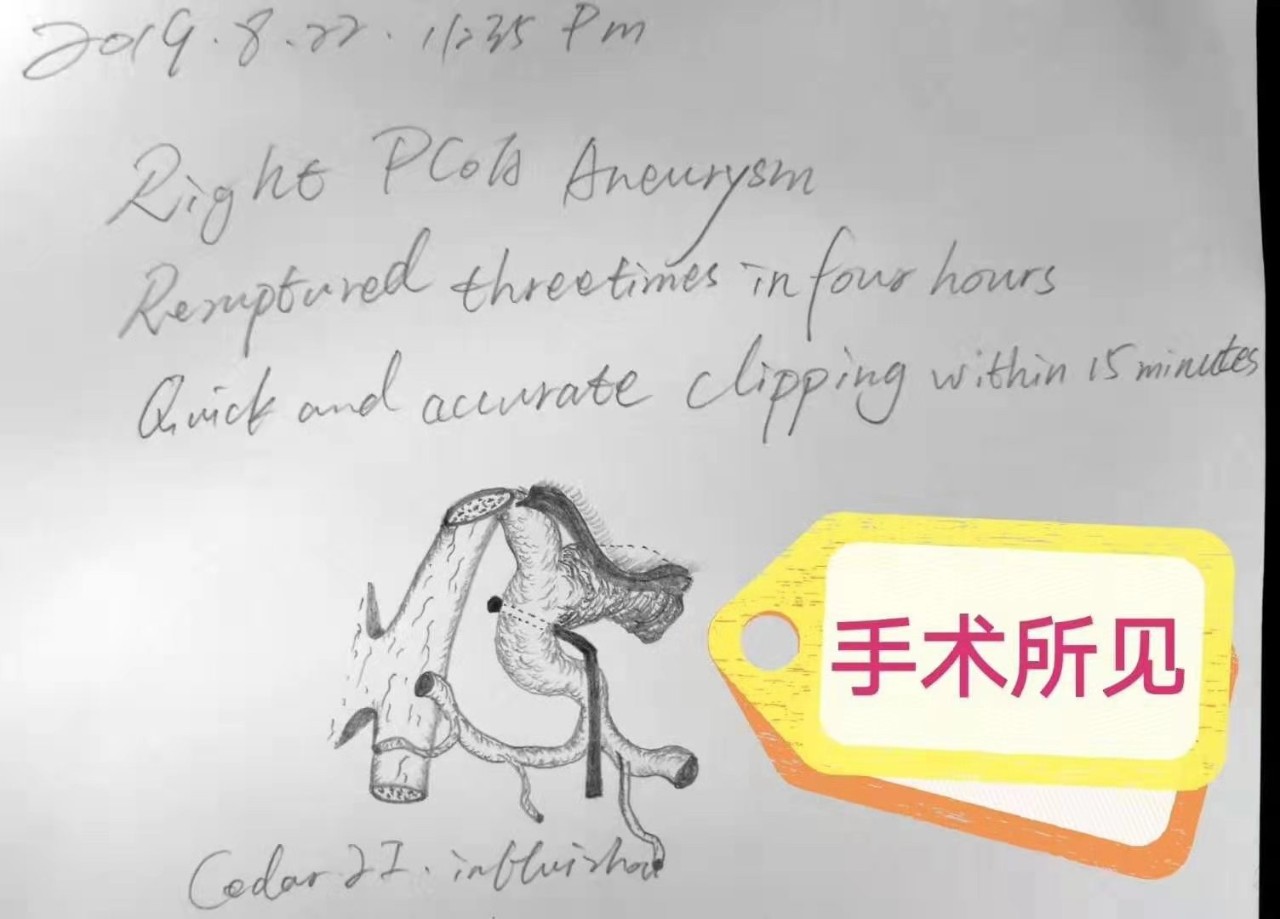 2019.8.22. 11:35 Pm
Right PCoA Aneurysm
Reruptured three times in four hours
Quick and accurate clipping within 15 minutes
手术所见
Cedar